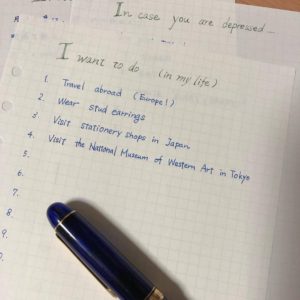 In case you are depressed...
I want to do (in my life)
1. Travel abroad (Europe!)
2. Wear stud earrings
3. Visit stationery shops in Japan
4. Visit the National Museum of Western Art in Tokyo
5.
6.
7.
8.
9.